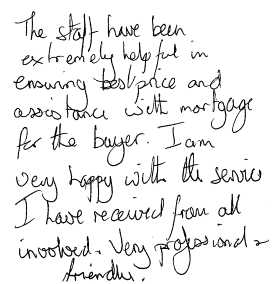 The staff have been
extremely helpful in
ensuring best price and
assistance with mortgage
for the buyer. I am
very happy with the service
I have received from all
involved. Very professional &
friendly.